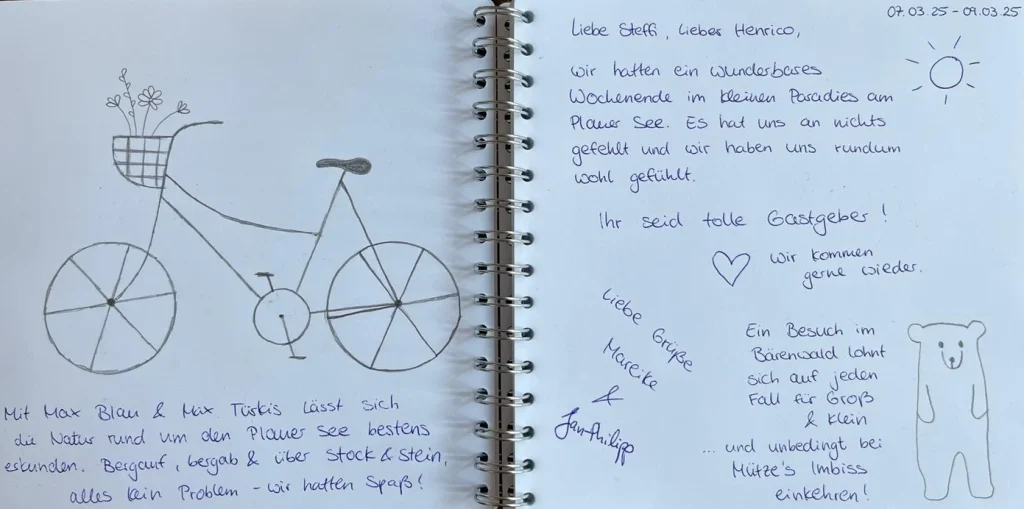 Mit Max Blau & Max Türkis lässt sich
die Natur rund um den Plauer See bestens
erkunden. Bergauf, bergab & über Stock & Stein,
alles kein Problem - wir hatten Spaß!
07.03.25 - 09.03.25
Liebe Steffi, Lieber Henrico,
wir hatten ein wunderbares
Wochenende im kleinen Paradies am
Plauer See. Es hat uns an nichts
gefehlt und wir haben uns rundum
wohl gefühlt.
Ihr seid tolle Gastgeber!
Wir kommen
gerne wieder.
Liebe Grüße
Mareike
&
Jan-Philipp
Ein Besuch im
Bärenwald lohnt
sich auf jeden
Fall für Groß
& klein
... und unbedingt bei
Mütze's Imbiss
einkehren!